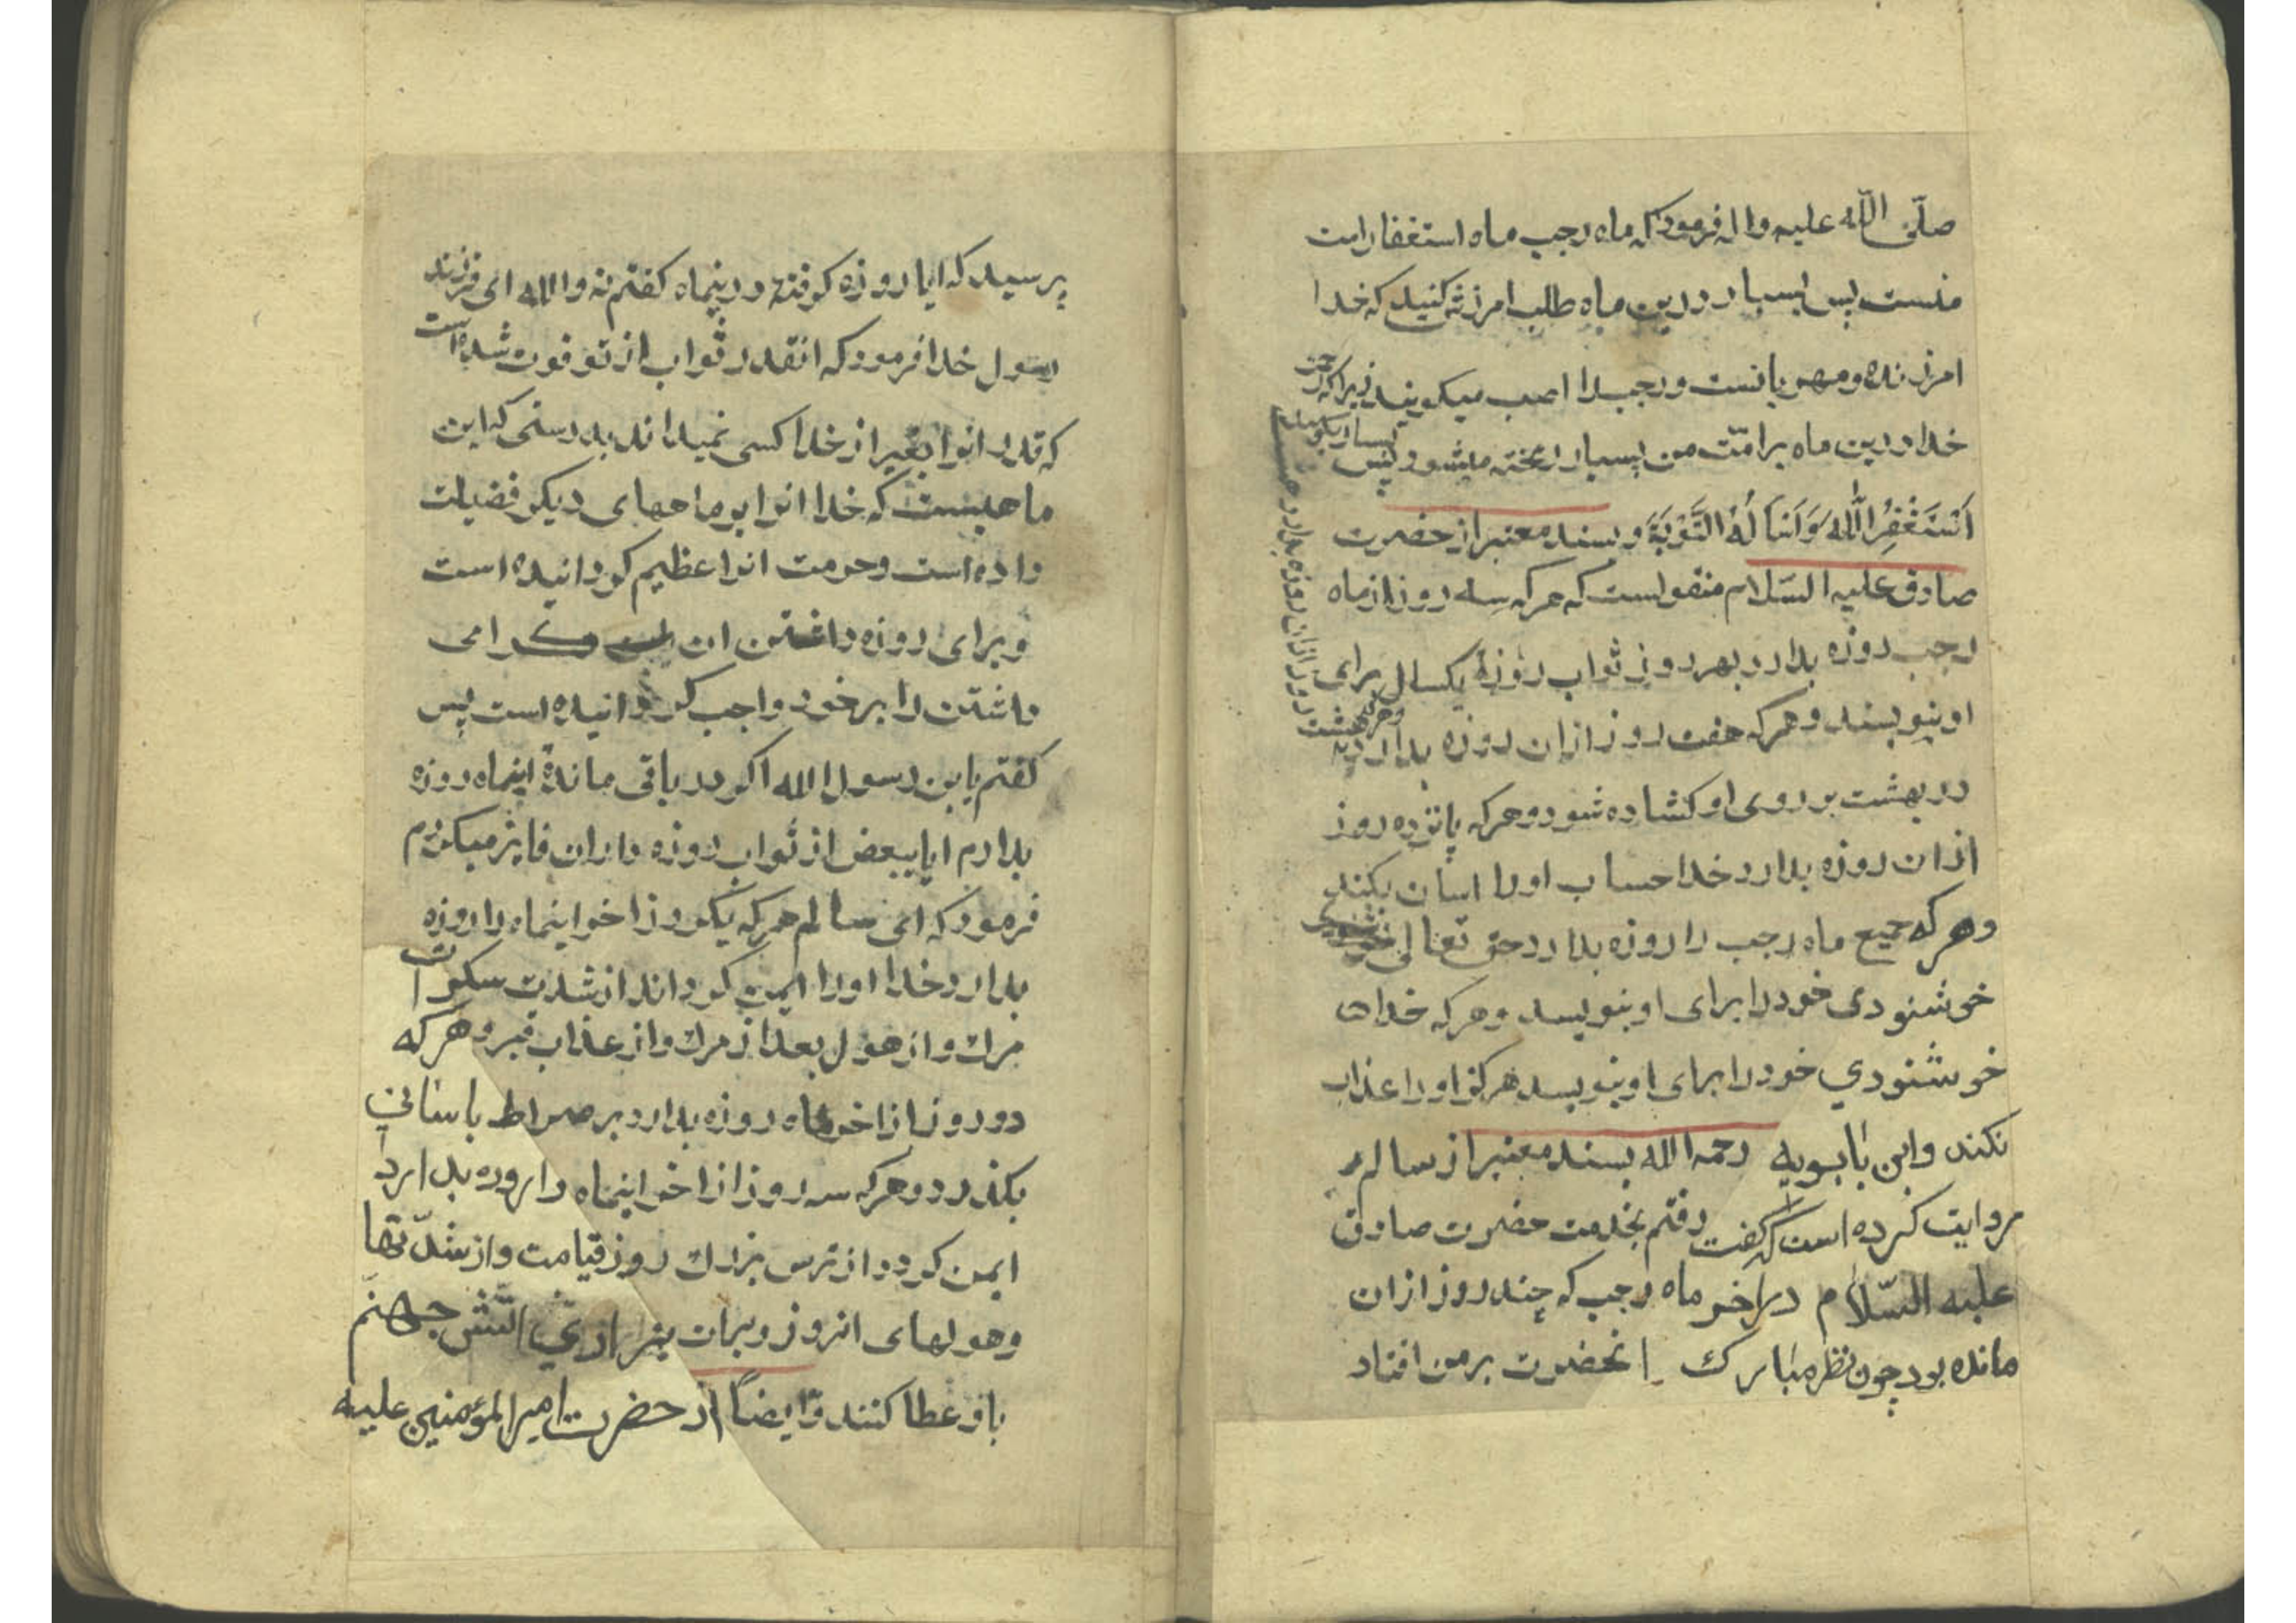 صلّی اللّه علیه واله فرمود که ماه رجب ماه استغفار امت
منست پس بسیار درین ماه طلب امرزش کنید که خدا
امرزنده و مهربانست و رجب را اصب میکویند زیرا که رحمت
خدا درین ماه بر امّت من بسیار ریخته میشود پس بسیار بکویید
اَسْتَغْفِرُ اللّٰهَ وَاَسْاَلُهُ التَّوْبَةَ و بسند معتبر از حضرت
صادق علیه السّلام منقولست که هر که سه روز از ماه
رجب روزه بدارد بهر روزی ثواب روزهٔ یکسال برای
او بنویسند و هر که هفت روز از ان روزه بدارد
و هر که هشت روز از ان روزه بدارد و هشت
در بهشت بر روی او کشاده شود و هر که پانزده روز
از ان روزه بدارد خدا حساب اورا اسان بکند
و هر که جمیع ماه رجب را روزه بدارد حق تعالی
خوشنودی خود را برای او بنویسد و هر که خدای
خوشنودي خود را برای او بنویسد هرکز اورا عذاب
نکند وابن بابویه رحمه الله بسند معتبر از سالم
روایت کرده است که کفت رفتم بخدمت حضرت صادق
علیه السّلام در اخر ماه رجب که چند روز از ان
مانده بود چون نظر مبارک انحضرت بر من افتاد
پرسید که ایا روزه کرفتهٔ درینماه کفتم نه والله ای فرزند
رسول خدا فرمود که انقدر ثواب از تو فوت شده است
که قدر انرا بغیر از خدا کسی نمیداند بدرستی که این
ماهیست که خدا انرا بر ماههای دیکر فضیلت
داده است و حرمت انرا عظیم کردانیده است
و برای روزه داشتن ان کرامی
داشتن را بر خود واجب کردانیده است پس
کفتم یابن رسول الله اکر در باقی ماندهٔ اینماه روزه
بدارم ایا ببعض از ثواب روزه داران فایز میکردم
فرمود که ای سالم هر که یکروز اخر اینماه را روزه
بدارد خدا اورا ایمن کرداند از شدت سکرات
مرك و از هول بعد از مرك و از عذاب قبر و هر که
دو روز از اخر ماه روزه بدارد بر صراط باسانی
بکذرد و هر که سه روز از اخر اینماه را روزه بدارد
ایمن کردد از ترس بزرك روز قیامت و از شدّتها
و هولهای انروز و برات بیزاری از اتش جهنّم
باو عطا کنند و ایضاً از حضرت امیرالمؤمنین علیه